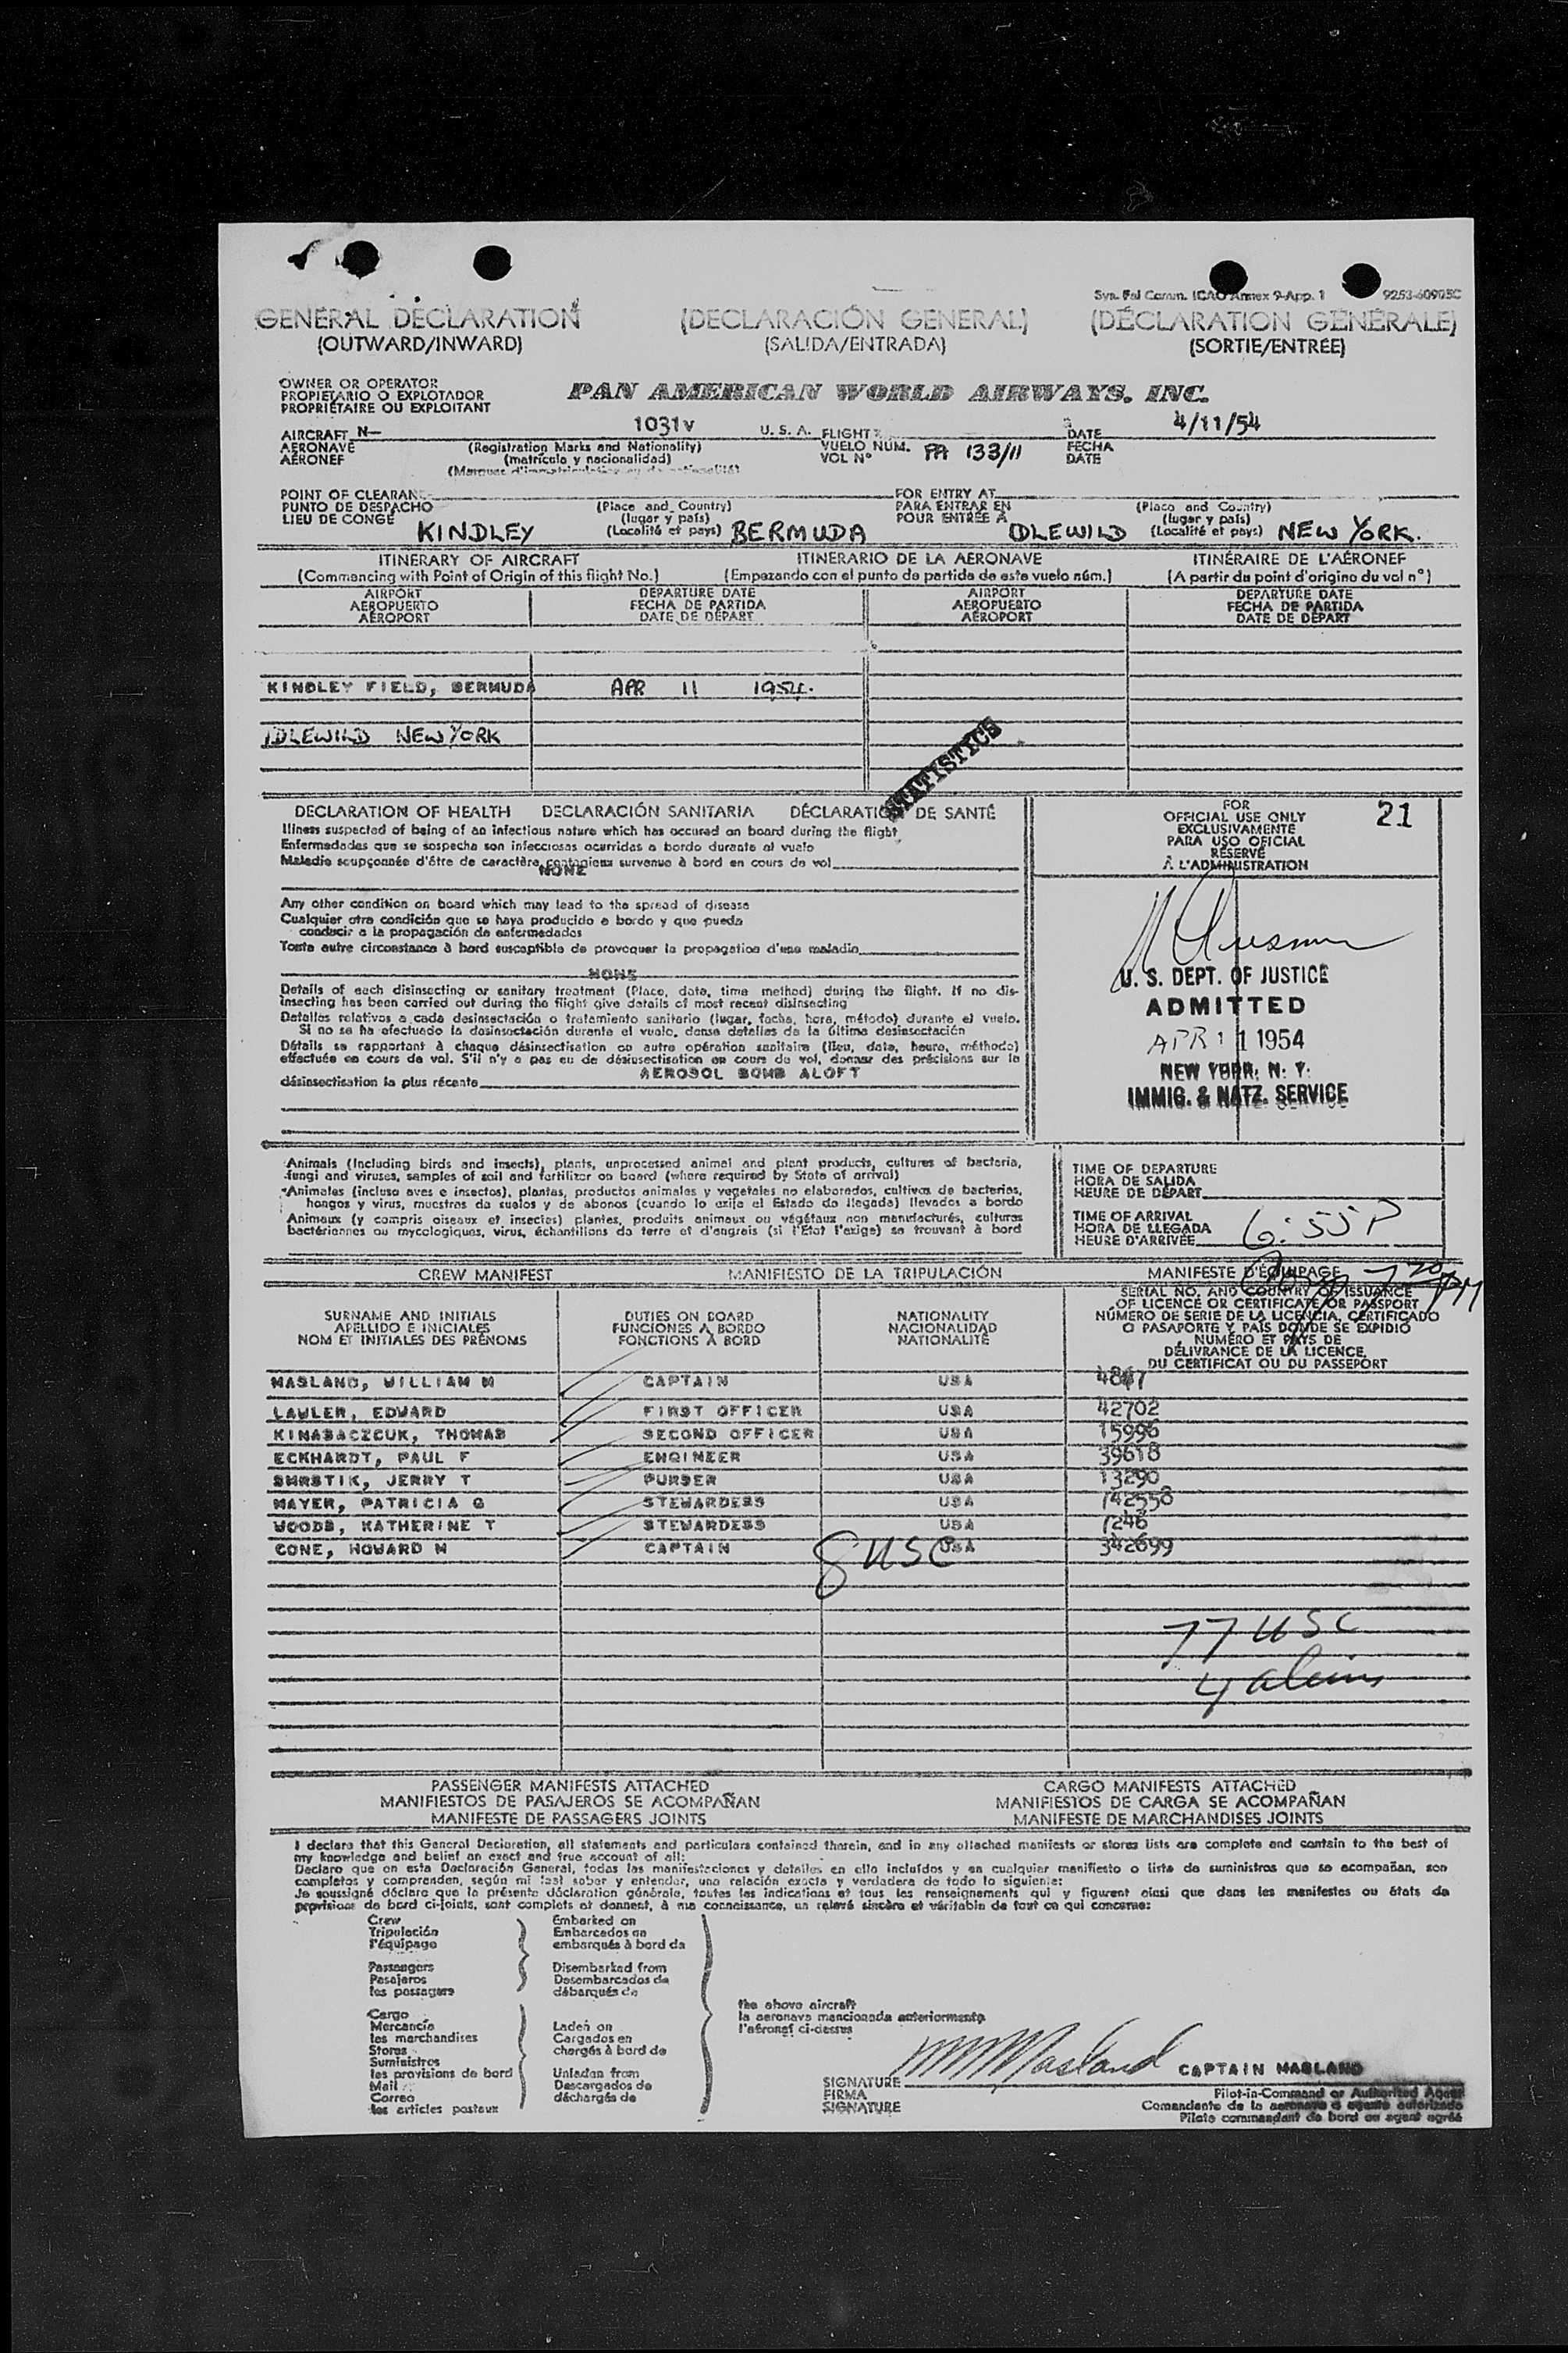 Sys. Fal Comm. ICAO Annex 9-App. 1 9253-60905C
GENERAL DECLARATION (DECLARACIÓN GENERAL) (DÉCLARATION GÉNÉRALE)
(OUTWARD/INWARD) (SALIDA/ENTRADA) (SORTIE/ENTRÉE)
OWNER OR OPERATOR
PROPIETARIO O EXPLOTADOR
PROPRIÉTAIRE OU EXPLOITANT
PAN AMERICAN WORLD AIRWAYS, INC.
AIRCRAFT N— 1031V U. S. A. FLIGHT DATE 4/11/54
AERONAVE (Registration Marks and Nationality) VUELO NUM. PA 133/11 FECHA
AÉRONEF (matrícula y nacionalidad) VOL N° DATE
(Marques d'immatriculation ou de nationalité)
POINT OF CLEARANCE FOR ENTRY AT
PUNTO DE DESPACHO (Place and Country) PARA ENTRAR EN (Place and Country)
LIEU DE CONGÉ (lugar y país) POUR ENTRÉE À (lugar y país)
KINDLEY (Localité et pays) BERMUDA IDLEWILD (Localité et pays) NEW YORK.
ITINERARY OF AIRCRAFT ITINERARIO DE LA AERONAVE ITINÉRAIRE DE L'AÉRONEF
(Commencing with Point of Origin of this flight No.) (Empezando con el punto de partida de este vuelo núm.) (A partir du point d'origine du vol n°)
AIRPORT DEPARTURE DATE AIRPORT DEPARTURE DATE
AEROPUERTO FECHA DE PARTIDA AEROPUERTO FECHA DE PARTIDA
AÉROPORT DATE DE DÉPART AÉROPORT DATE DE DÉPART
KINDLEY FIELD, BERMUDA APR 11 1954.
IDLEWILD NEW YORK
STATISTICS
DECLARATION OF HEALTH DECLARACIÓN SANITARIA DÉCLARATION DE SANTÉ
Illness suspected of being of an infectious nature which has occured on board during the flight
Enfermedades que se sospecha son infecciosas ocurridas a bordo durante el vuelo
Maladie soupçonnée d'être de caractère contagieux survenue à bord en cours de vol
NONE
Any other condition on board which may lead to the spread of disease
Cualquier otra condición que se haya producido a bordo y que pueda
conducir a la propagación de enfermedades
Toute autre circonstance à bord susceptible de provoquer la propagation d'une maladie
NONE
Details of each disinsecting or sanitary treatment (Place, date, time method) during the flight. If no dis-
insecting has been carried out during the flight give details of most recent disinsecting
Detalles relativos a cada desinsectación o tratamiento sanitario (lugar, fecha, hora, método) durante el vuelo.
Si no se ha efectuado la desinsectación durante el vuelo, dense detalles de la última desinsectación
Détails se rapportant à chaque désinsectisation ou autre opération sanitaire (lieu, date, heure, méthode)
effectuée en cours de vol. S'il n'y a pas eu de désinsectisation en cours de vol, donner des précisions sur la
AEROSOL BOMB ALOFT
désinsectisation la plus récente
FOR 21
OFFICIAL USE ONLY
EXCLUSIVAMENTE
PARA USO OFICIAL
RÉSERVÉ
À L'ADMINISTRATION
U. S. DEPT. OF JUSTICE
ADMITTED
APR 11 1954
NEW YORK, N. Y.
IMMIG. & NATZ. SERVICE
Animals (Including birds and insects), plants, unprocessed animal and plant products, cultures of bacteria,
fungi and viruses, samples of soil and fertilizer on board (where required by State of arrival)
Animales (incluso aves e insectos), plantas, productos animales y vegetales no elaborados, cultivos de bacterias,
hongos y virus, muestras de suelos y de abonos (cuando lo exija el Estado de llegada) llevados a bordo
Animaux (y compris oiseaux et insectes) plantes, produits animaux ou végétaux non manufacturés, cultures
bactériennes ou mycologiques, virus, échantillons de terre et d'engrais (si l'État l'exige) se trouvant à bord
TIME OF DEPARTURE
HORA DE SALIDA
HEURE DE DÉPART
TIME OF ARRIVAL
HORA DE LLEGADA 6:55P
HEURE D'ARRIVÉE
CREW MANIFEST MANIFIESTO DE LA TRIPULACIÓN MANIFESTE D'ÉQUIPAGE 7 20 PM
SURNAME AND INITIALS DUTIES ON BOARD NATIONALITY SERIAL NO. AND COUNTRY OF ISSUANCE
APELLIDO E INICIALES FUNCIONES A BORDO NACIONALIDAD OF LICENCE OR CERTIFICATE OR PASSPORT
NOM ET INITIALES DES PRÉNOMS FONCTIONS À BORD NATIONALITÉ NÚMERO DE SERIE DE LA LICENCIA, CERTIFICADO
O PASAPORTE Y PAÍS DONDE SE EXPIDIÓ
NUMÉRO ET PAYS DE
DÉLIVRANCE DE LA LICENCE,
DU CERTIFICAT OU DU PASSEPORT
MASLAND, WILLIAM M CAPTAIN USA 4867
LAWLER, EDWARD FIRST OFFICER USA 42702
KINASACZCUK, THOMAS SECOND OFFICER USA 15996
ECKHARDT, PAUL F ENGINEER USA 39618
SMRSTIK, JERRY T PURSER USA 13290
MAYER, PATRICIA G STEWARDESS USA 142558
WOODS, KATHERINE T STEWARDESS USA 7246
CONE, HOWARD M CAPTAIN USA 342699
8 USC
77 USC
4 aliens
PASSENGER MANIFESTS ATTACHED CARGO MANIFESTS ATTACHED
MANIFIESTOS DE PASAJEROS SE ACOMPAÑAN MANIFIESTOS DE CARGA SE ACOMPAÑAN
MANIFESTE DE PASSAGERS JOINTS MANIFESTE DE MARCHANDISES JOINTS
I declare that this General Declaration, all statements and particulars contained therein, and in any attached manifests or stores lists are complete and contain to the best of
my knowledge and belief an exact and true account of all:
Declaro que en esta Declaración General, todas las manifestaciones y detalles en ella incluídos y en cualquier manifiesto o lista de suministros que se acompañan, son
completos y comprenden, según mi leal saber y entender, una relación exacta y verdadera de todo lo siguiente:
Je soussigné déclare que la présente déclaration générale, toutes les indications et tous les renseignements qui y figurent ainsi que dans les manifestes ou états de
provisions de bord ci-joints, sont complets et donnent, à ma connaissance, un relevé sincère et véritable de tout ce qui concerne:
Crew Embarked on
Tripulación Embarcados en
l'équipage embarqués à bord de
Passengers Disembarked from
Pasajeros Desembarcados de
les passagers débarqués de
Cargo
Mercancía Laden on
les marchandises Cargados en
Stores chargés à bord de
Suministros
les provisions de bord Unladen from
Mail Descargados de
Correo déchargés de
les articles postaux
the above aircraft
la aeronave mencionada anteriormente
l'aéronef ci-dessus
SIGNATURE WMMasland CAPTAIN MASLAND
FIRMA Pilot-in-Command or Authorized Agent
SIGNATURE Comandante de la aeronave o agente autorizado
Pilote commandant de bord ou agent agréé